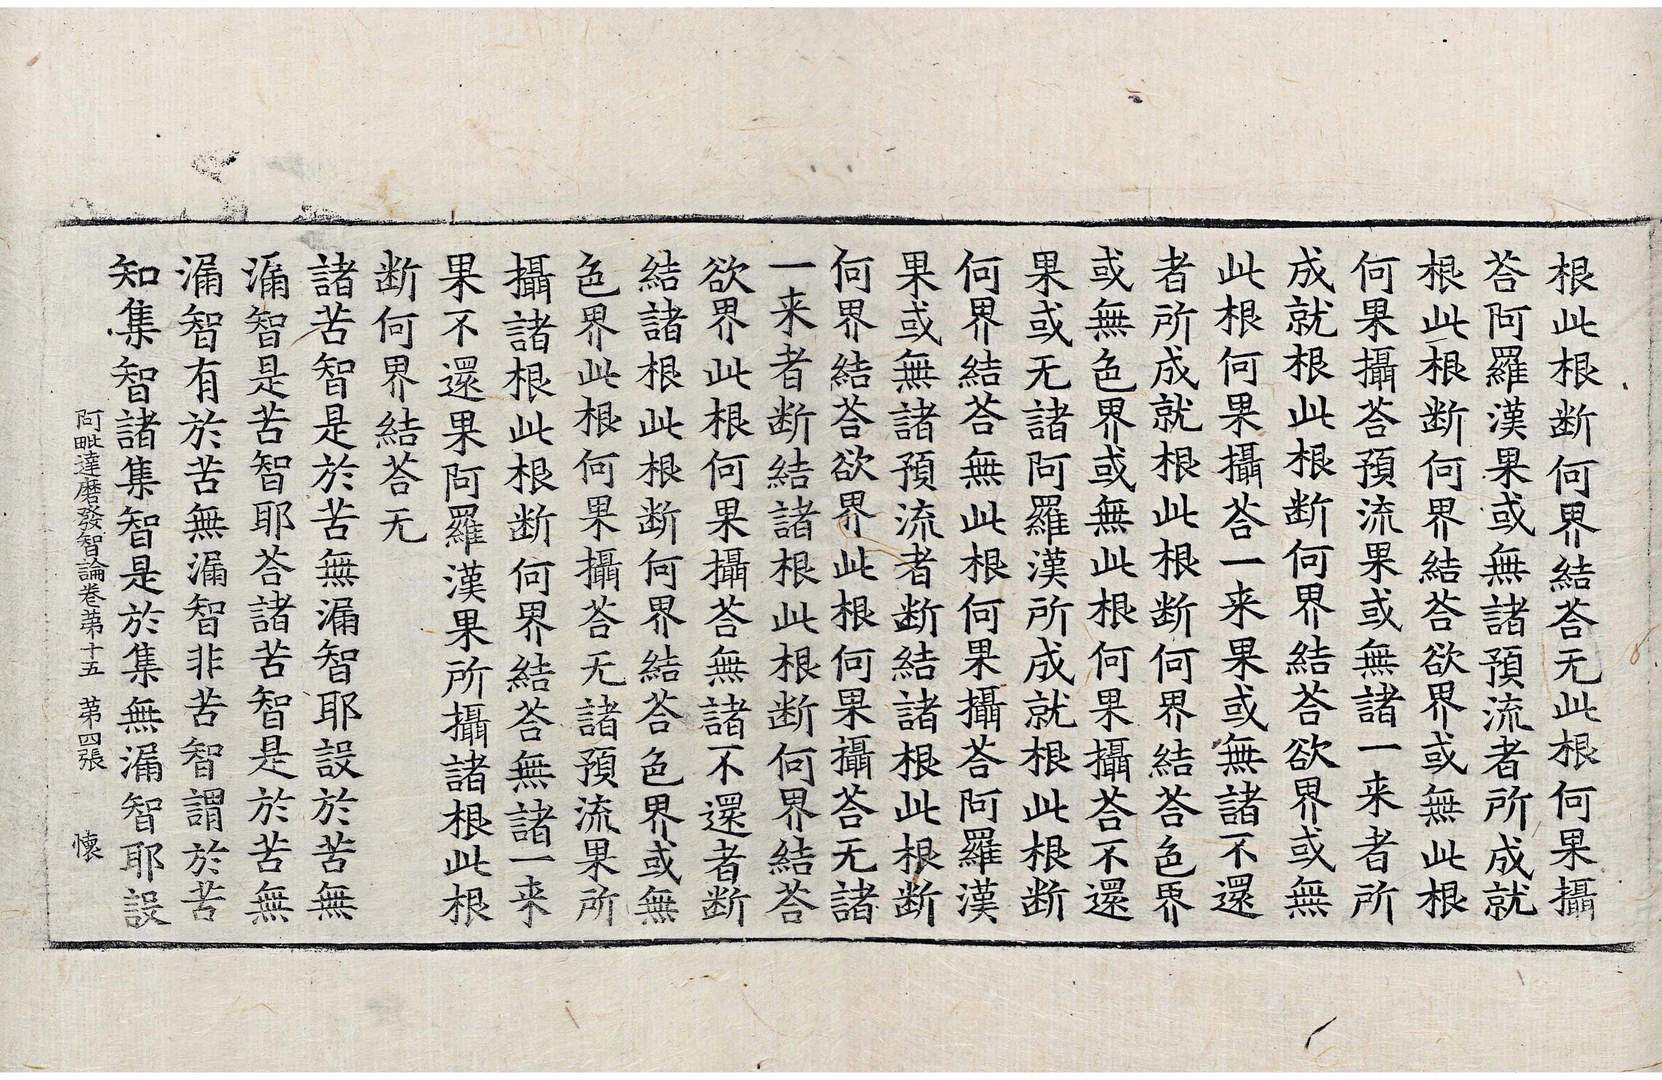 根此根断何界結荅无此根何果攝
荅阿羅漢果或無諸預流者所成就
根此根断何界結荅欲界或無此根
何果攝荅預流果或無諸一来者所
成就根此根断何界結荅欲界或無
此根何果攝荅一来果或無諸不還
者所成就根此根断何界結荅色界
或無色界或無此根何果攝荅不還
果或无諸阿羅漢所成就根此根断
何界結荅無此根何果攝荅阿羅漢
果或無諸預流者断結諸根此根断
何界結荅欲界此根何果攝荅无諸
一来者断結諸根此根断何界結荅
欲界此根何果攝荅無諸不還者断
結諸根此根断何界結荅色界或無
色界此根何果攝荅无諸預流果所
攝諸根此根断何界結荅無諸一来
果不還果阿羅漢果所攝諸根此根
断何界結荅无
諸苦智是於苦無漏智耶設於苦無
漏智是苦智耶荅諸苦智是於苦無
漏智有於苦無漏智非苦智謂於苦
知集智諸集智是於集無漏智耶設
阿毗達磨發智論卷苐十五　苐四張　懷